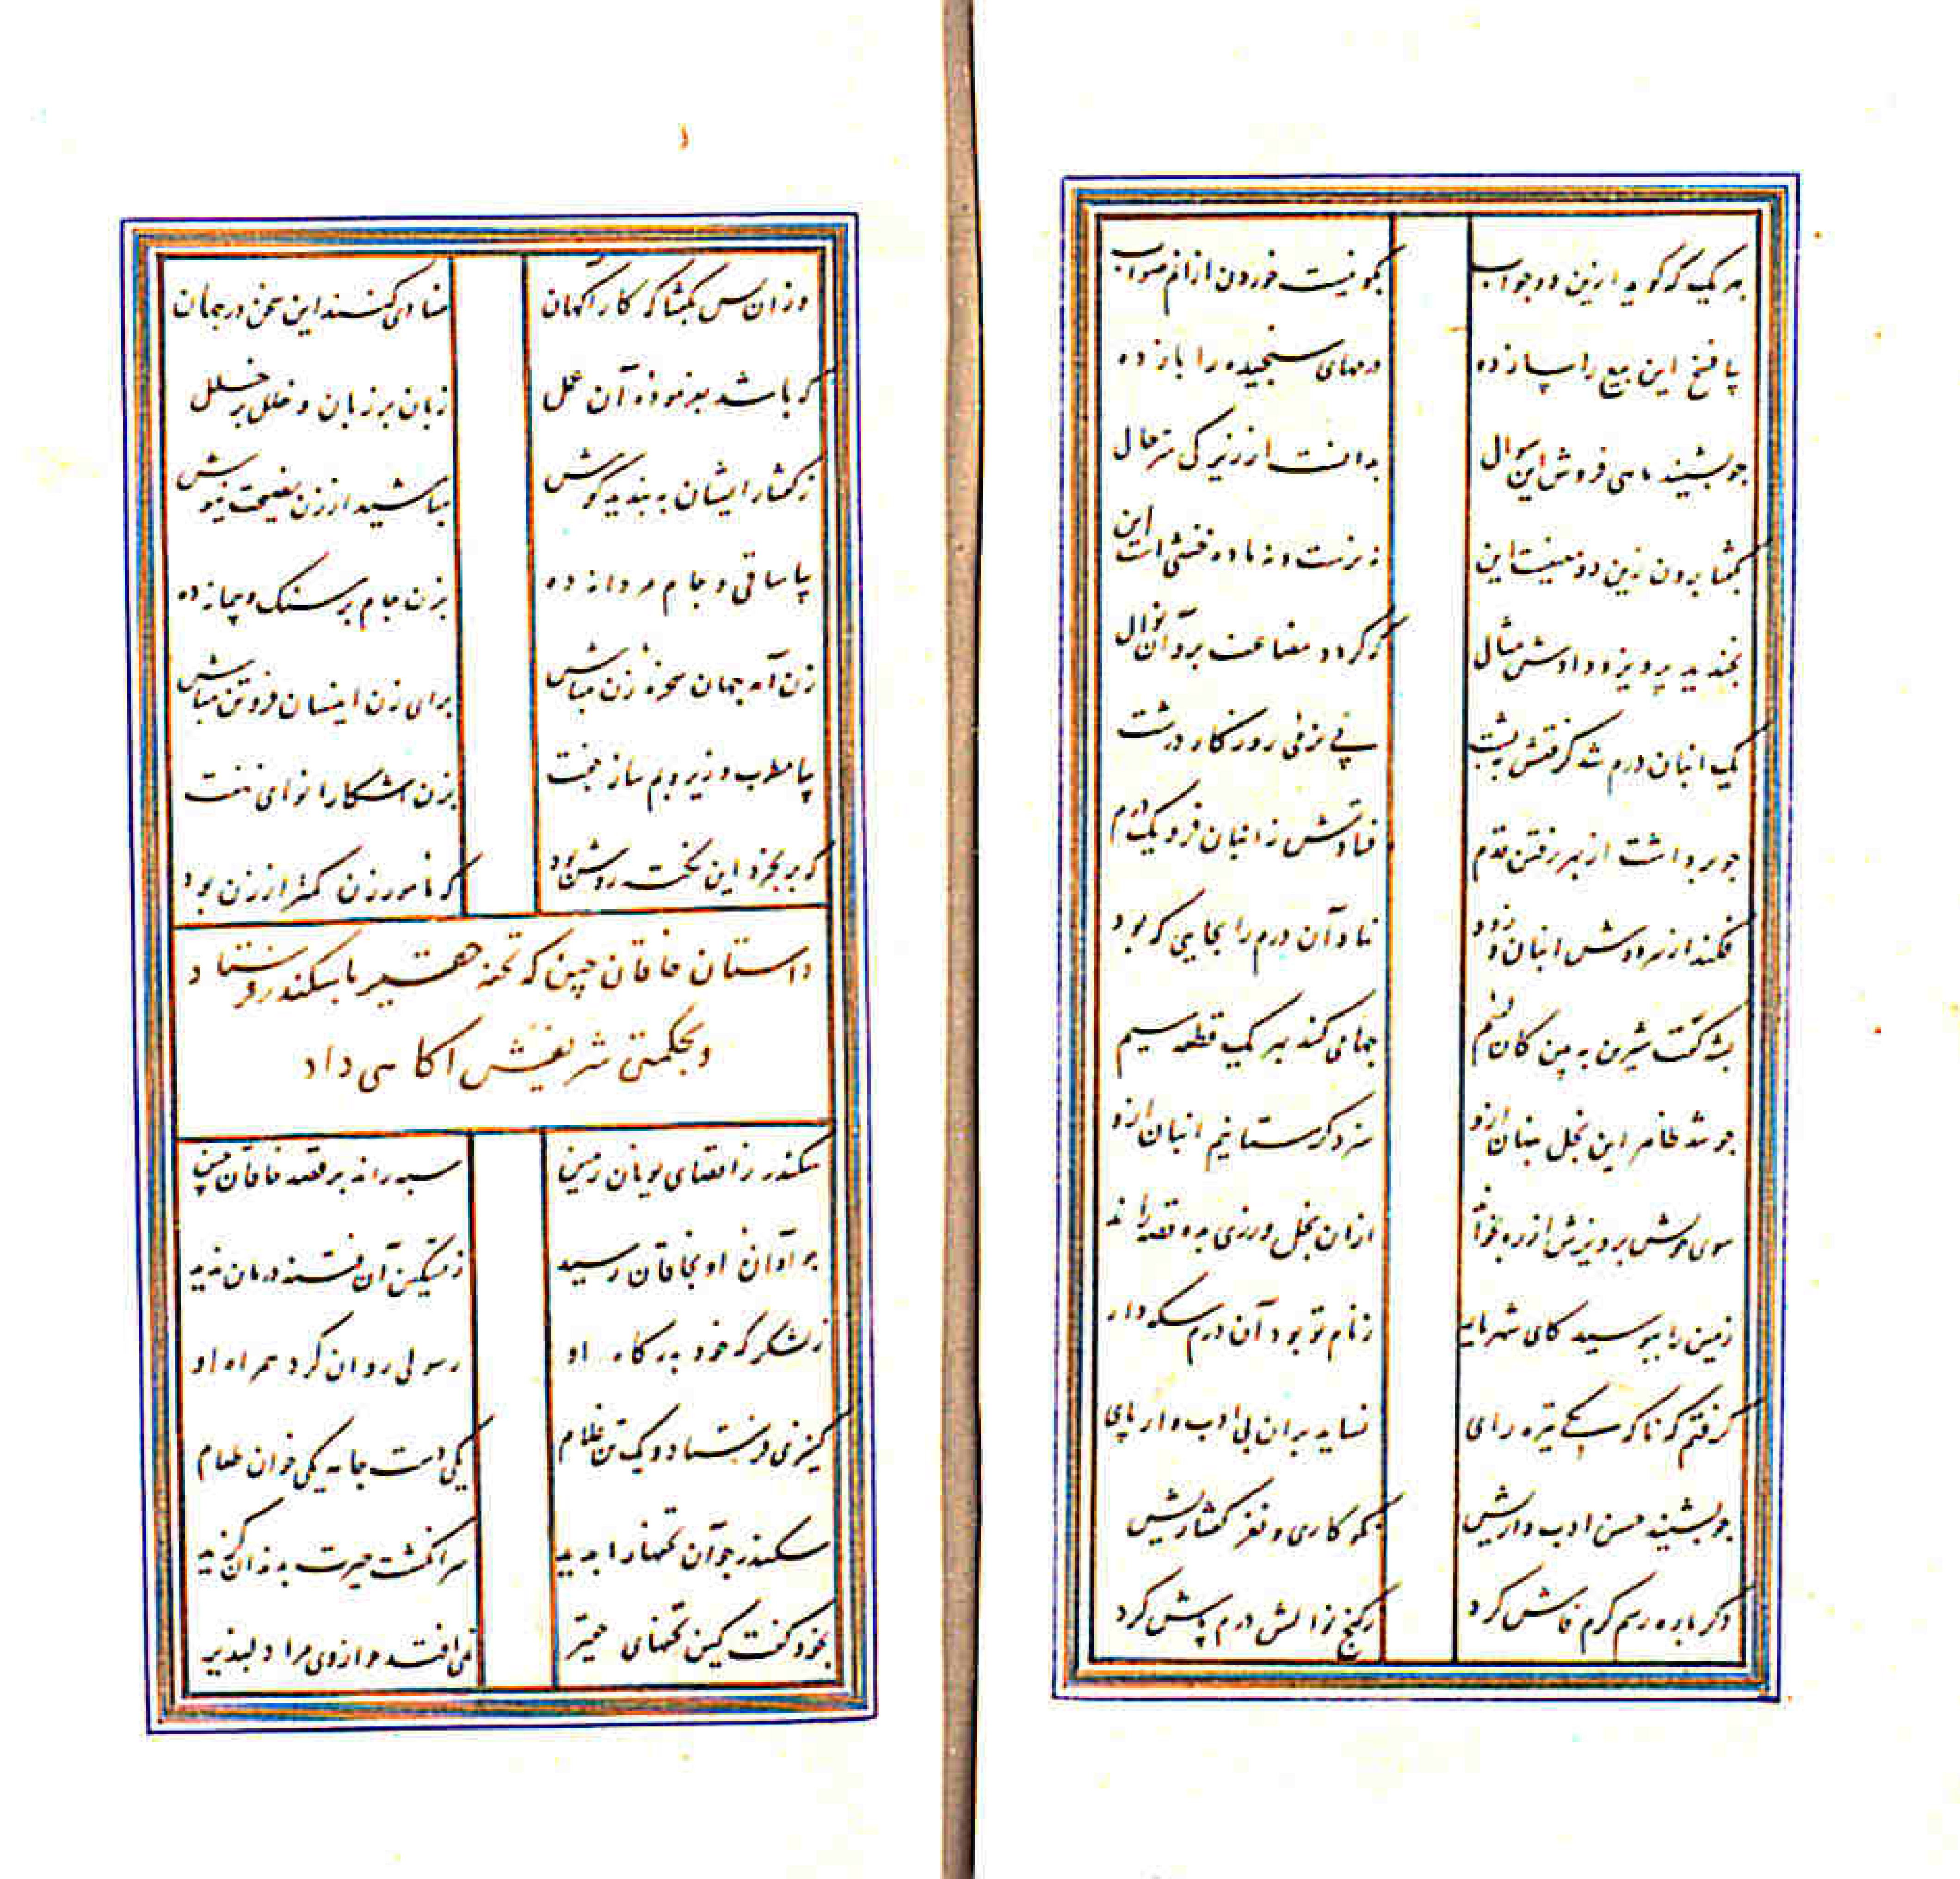 بهر یک که گوید ازین دو جواب بگو نیست خوردن ازانم صواب
بیا فسخ این بیع را ساز ده درمهای سنجیده را باز ده
چو بشنید ماهی فروش این سوال بدانست از زیرکی سر حال
بگفتا برون زین دو صنفست این نه نرست و نه ماده خنثی است این
بخندید پرویز و دادش مثال که گردد مضاعف بر و آن نوال
یک انبان درم شد گرفتش به پشت پی نرمی روزگار درشت
چو برداشت از بهر رفتن قدم فتادش ز انبان فرو یک درم
فکند از سر دوش انبان و زود نهاد آن درم را بجایی که بود
بشه گفت شیرین ببین کان لئیم چها می کند بهر یک قطعه سیم
چو شد ظاهر این بخل پنهان ازو سزد گر ستانیم انبان ازو
سوی خویش پرویزش از ره بخواند ازان بخل ورزی بدو قصه راند
زمین را ببوسید کای شهریار ز نام تو بود آن درم سکه دار
گرفتم که ناگه یکی تیره رای نساید بران بی ادب وار پای
چو بشنید حسن ادب داریش نکوکاری و نغز گفتاریش
دگر باره رسم کرم فاش کرد ز گنج نوالش درم پاش کرد
وزان پس بگفتا که کارآگهان منادی کنند این سخن در جهان
که باشد بفرموده آن عمل زیان بر زیان و خلل بر خلل
ز گفتار ایشان ببندید گوش مباشید از زن نصیحت نیوش
بیا ساقی و جام مردانه ده بزن جام بر سنک و پیمانه ده
زن آمد جهان سخره زن مباش برای زن اینسان فروتن مباش
بیا مطرب و زیر و بم ساز جفت بزن آشکارا نوای نهفت
که بر بخرد این نکته روشن بود که نامور زن کمتر از زن بود
داستان خاقان چین که تحفه حقیر باسکندر فرستاد
و بحکمتی شریفش آگاهی داد
سکندر ز اقصای یونان زمین سپه راند بر قصد خاقان چین
چو آوازه او بخاقان رسید ز تسکین آن فتنه درمان ندید
ز لشکرگه خود بدرگاه او رسولی روان کرد همراه او
کنیزی فرستاد و یک تن غلام یکی دست جامه یکی خوان طعام
سکندر چو آن تحفها را بدید سر انگشت حیرت بدندان گزید
بخود گفت کین تحفهای حقیر نمی افتد از وی مرا دلپذیر